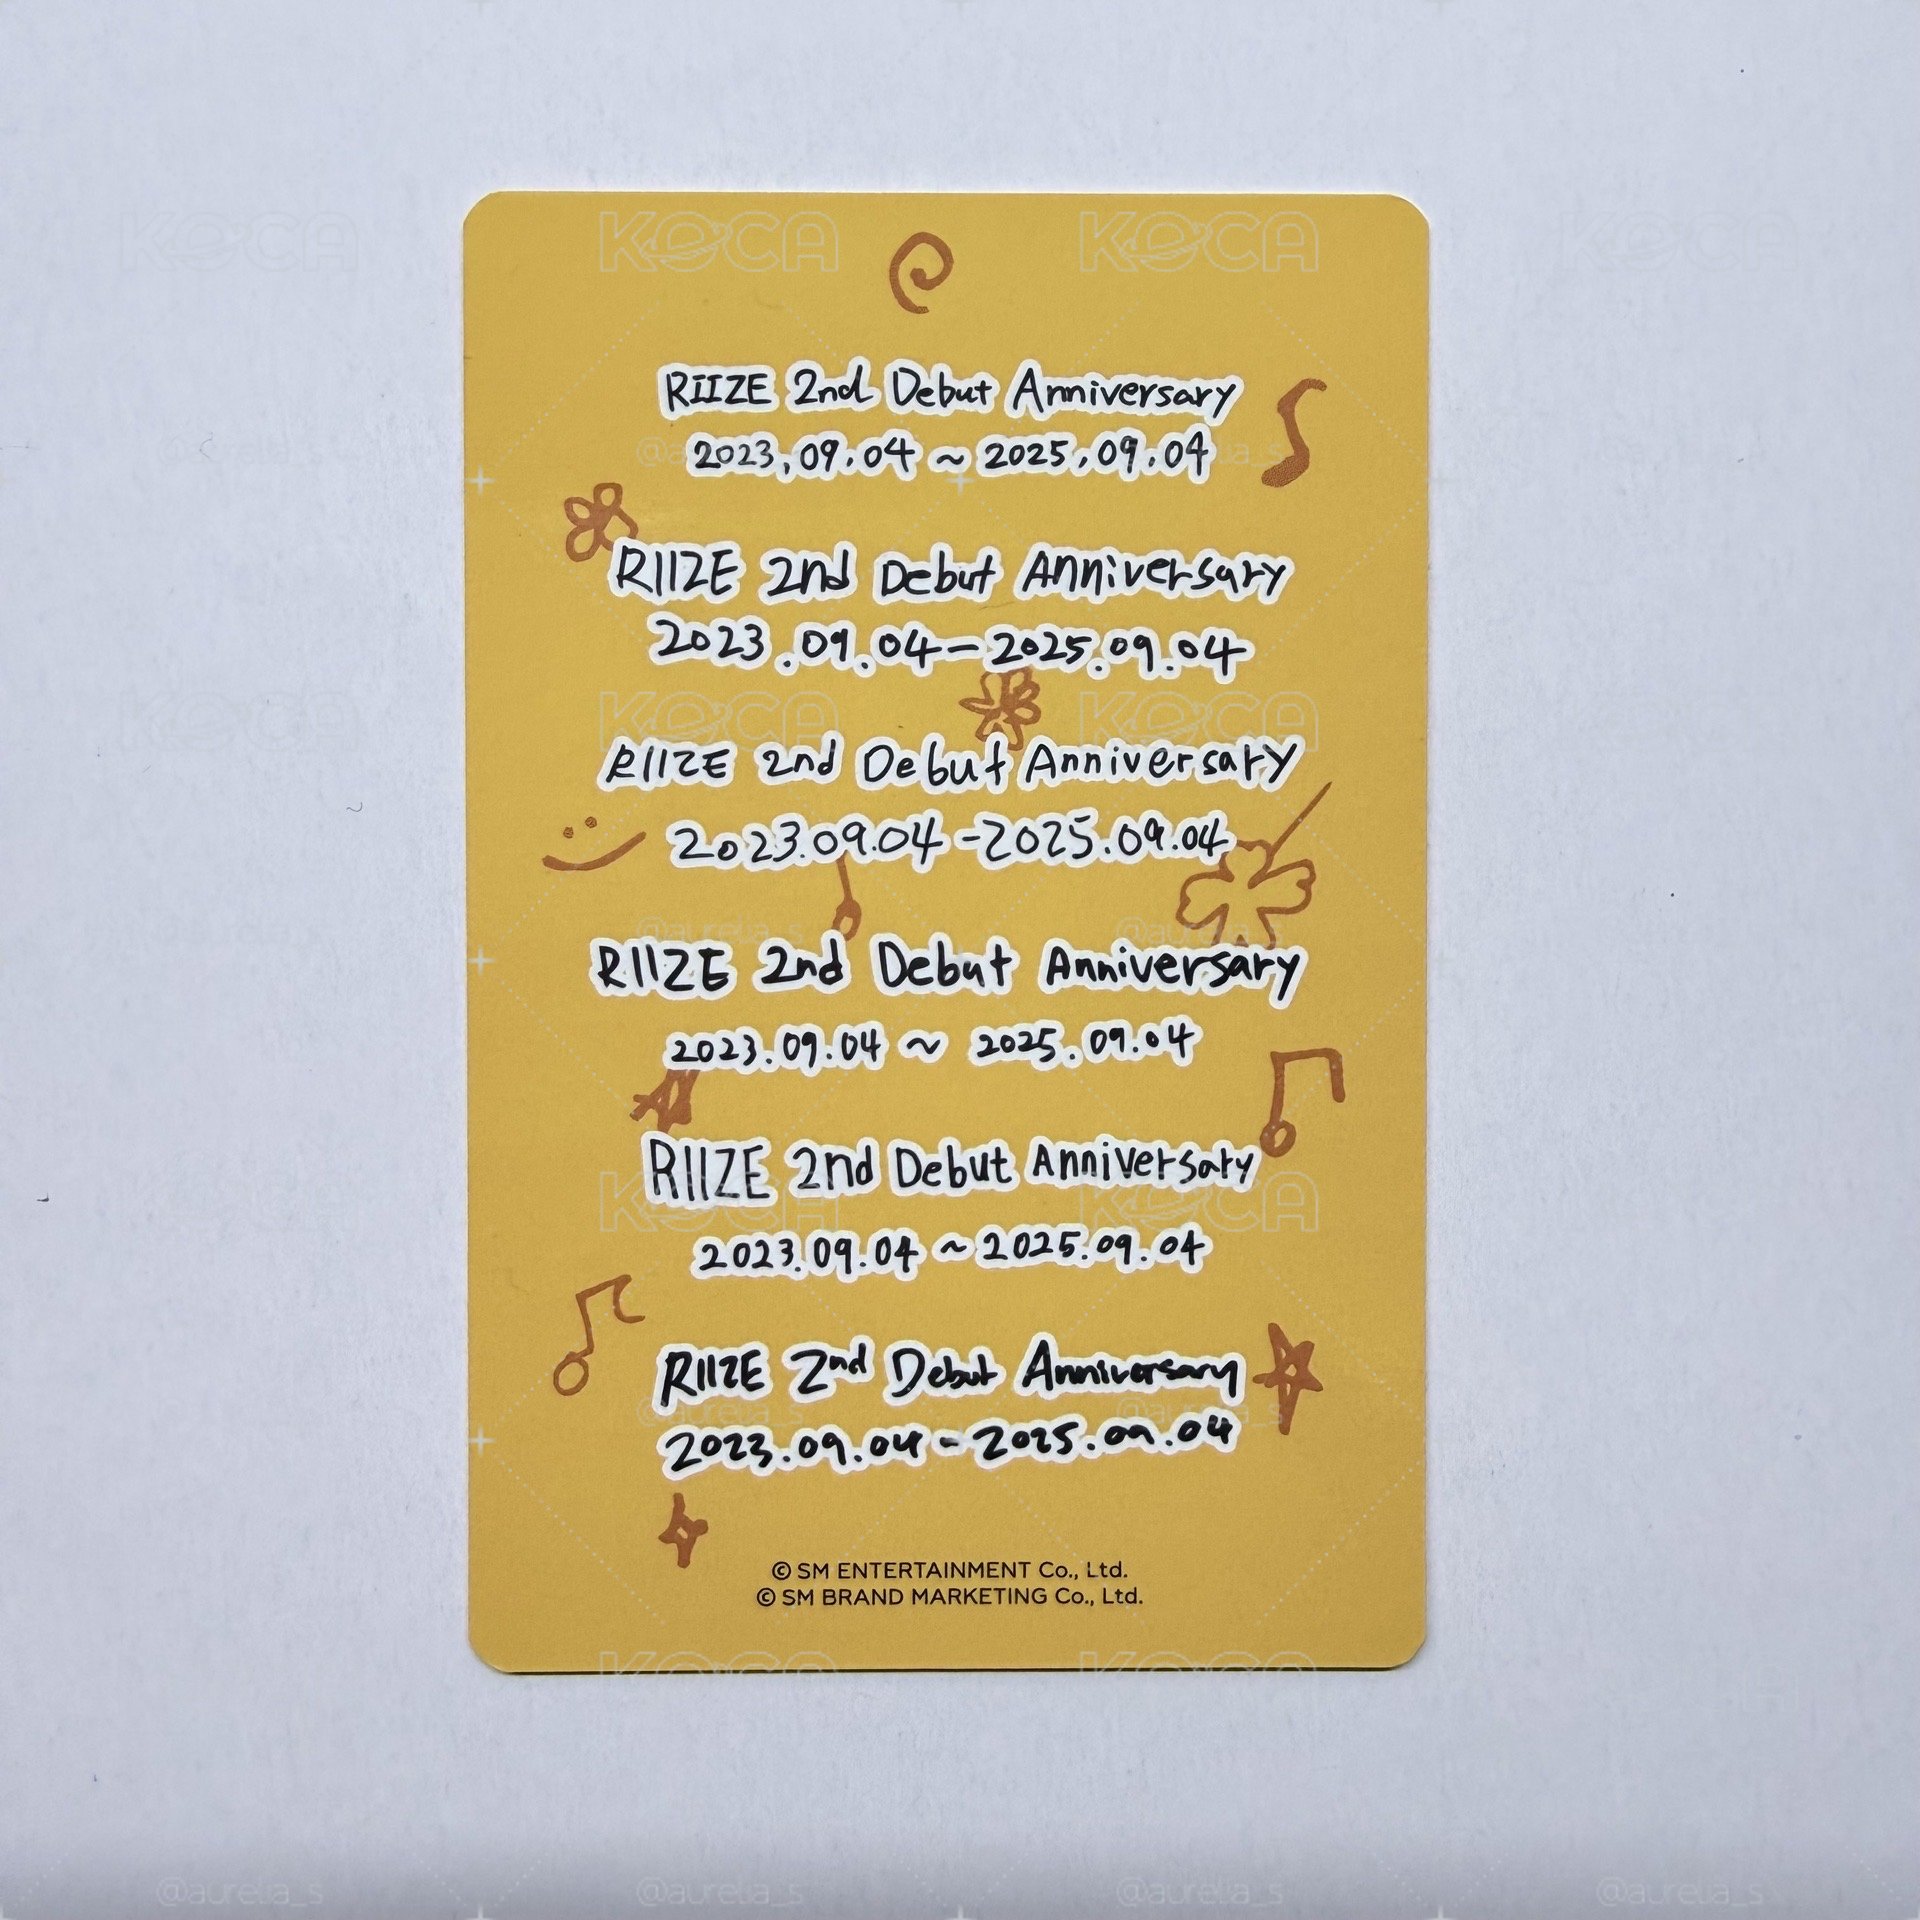 RIIZE 2nd Debut Anniversary
2023.09.04 ~ 2025.09.04
RIIZE 2nd Debut Anniversary
2023.09.04-2025.09.04
RIIZE 2nd Debut Anniversary
2023.09.04-2025.09.04
RIIZE 2nd Debut Anniversary
2023.09.04 ~ 2025.09.04
RIIZE 2nd Debut Anniversary
2023.09.04 ~ 2025.09.04
RIIZE 2nd Debut Anniversary
2023.09.04-2025.09.04
© SM ENTERTAINMENT Co., Ltd.
© SM BRAND MARKETING Co., Ltd.
KOCA KOCA KOCA KOCA
@aurelia_s @aurelia_s @aurelia_s @aurelia_s